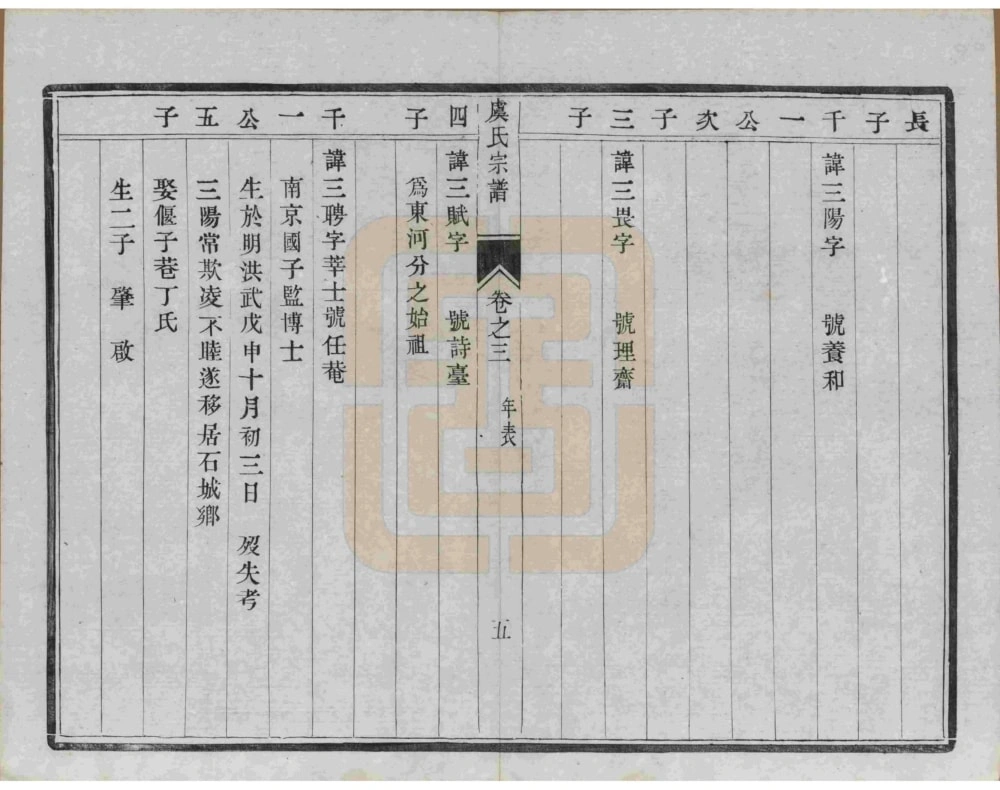 長子千一公次子三子
諱三陽字 號養和
諱三畏字 號理齋
虞氏宗譜 卷之三 年表 五
四子
諱三賦字 號詩臺
爲東河分之始祖
千一公五子
諱三聘字莘士號任菴
南京國子監博士
生於明洪武戊申十月初三日 歿失考
三陽常欺凌不睦遂移居石城鄉
娶偃子巷丁氏
生二子 肇 啟